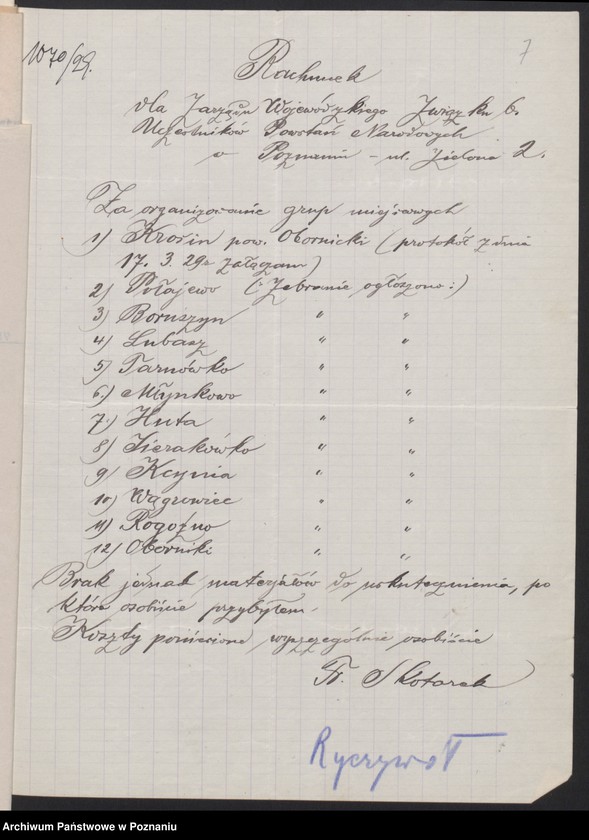 1070/29.
7
Rachunek
dla Zarządu Wojewódzkiego Związku b.
Uczestników Powstań Narodowych
w Poznaniu - ul. Zielona 2.
Za organizowanie grup miejscowych
1) Krośin pow. Obornicki (protokół z dnia
17. 3. 29r załączam)
2) Połajewo (: Zebranie ogłoszono :)
3) Boruszyn " "
4) Lubasz " "
5) Tarnówko " "
6) Młynkowo " "
7) Huta " "
8) Sierakówko " "
9) Kcynia " "
10) Wągrowiec " "
11) Rogoźno " "
12) Oborniki " "
Brak jednak materjałów do uskutecznienia, po
które osobiście przybyłem.
Koszty poniesione wyszczególnię osobiście
Fr. Skotarek
Ryczywół
Archiwum Państwowe w Poznaniu